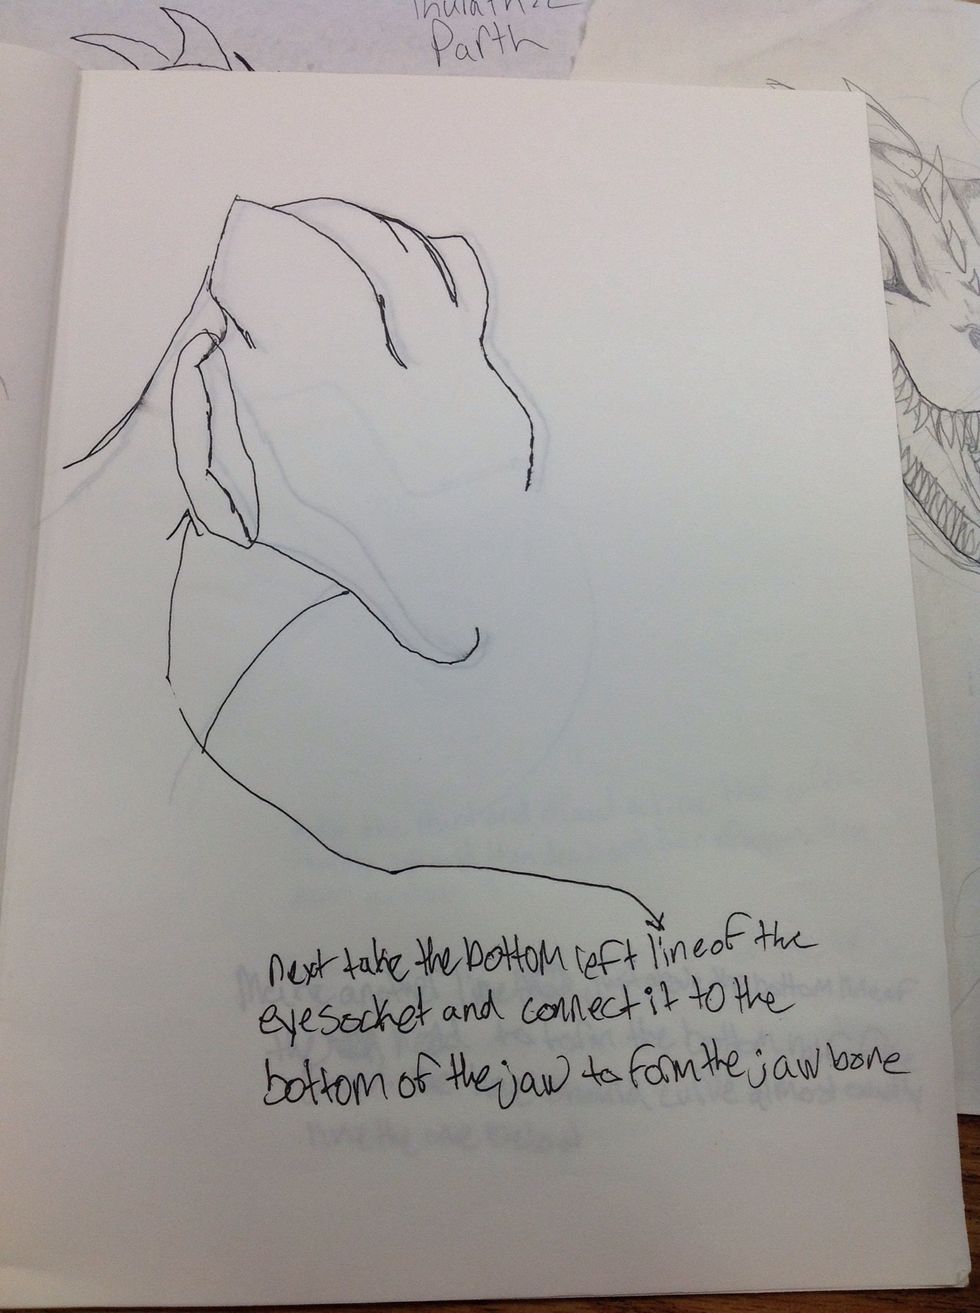 Parth
next take the bottom left line of the
eyesocket and connect it to the
bottom of the jaw to form the jaw bone